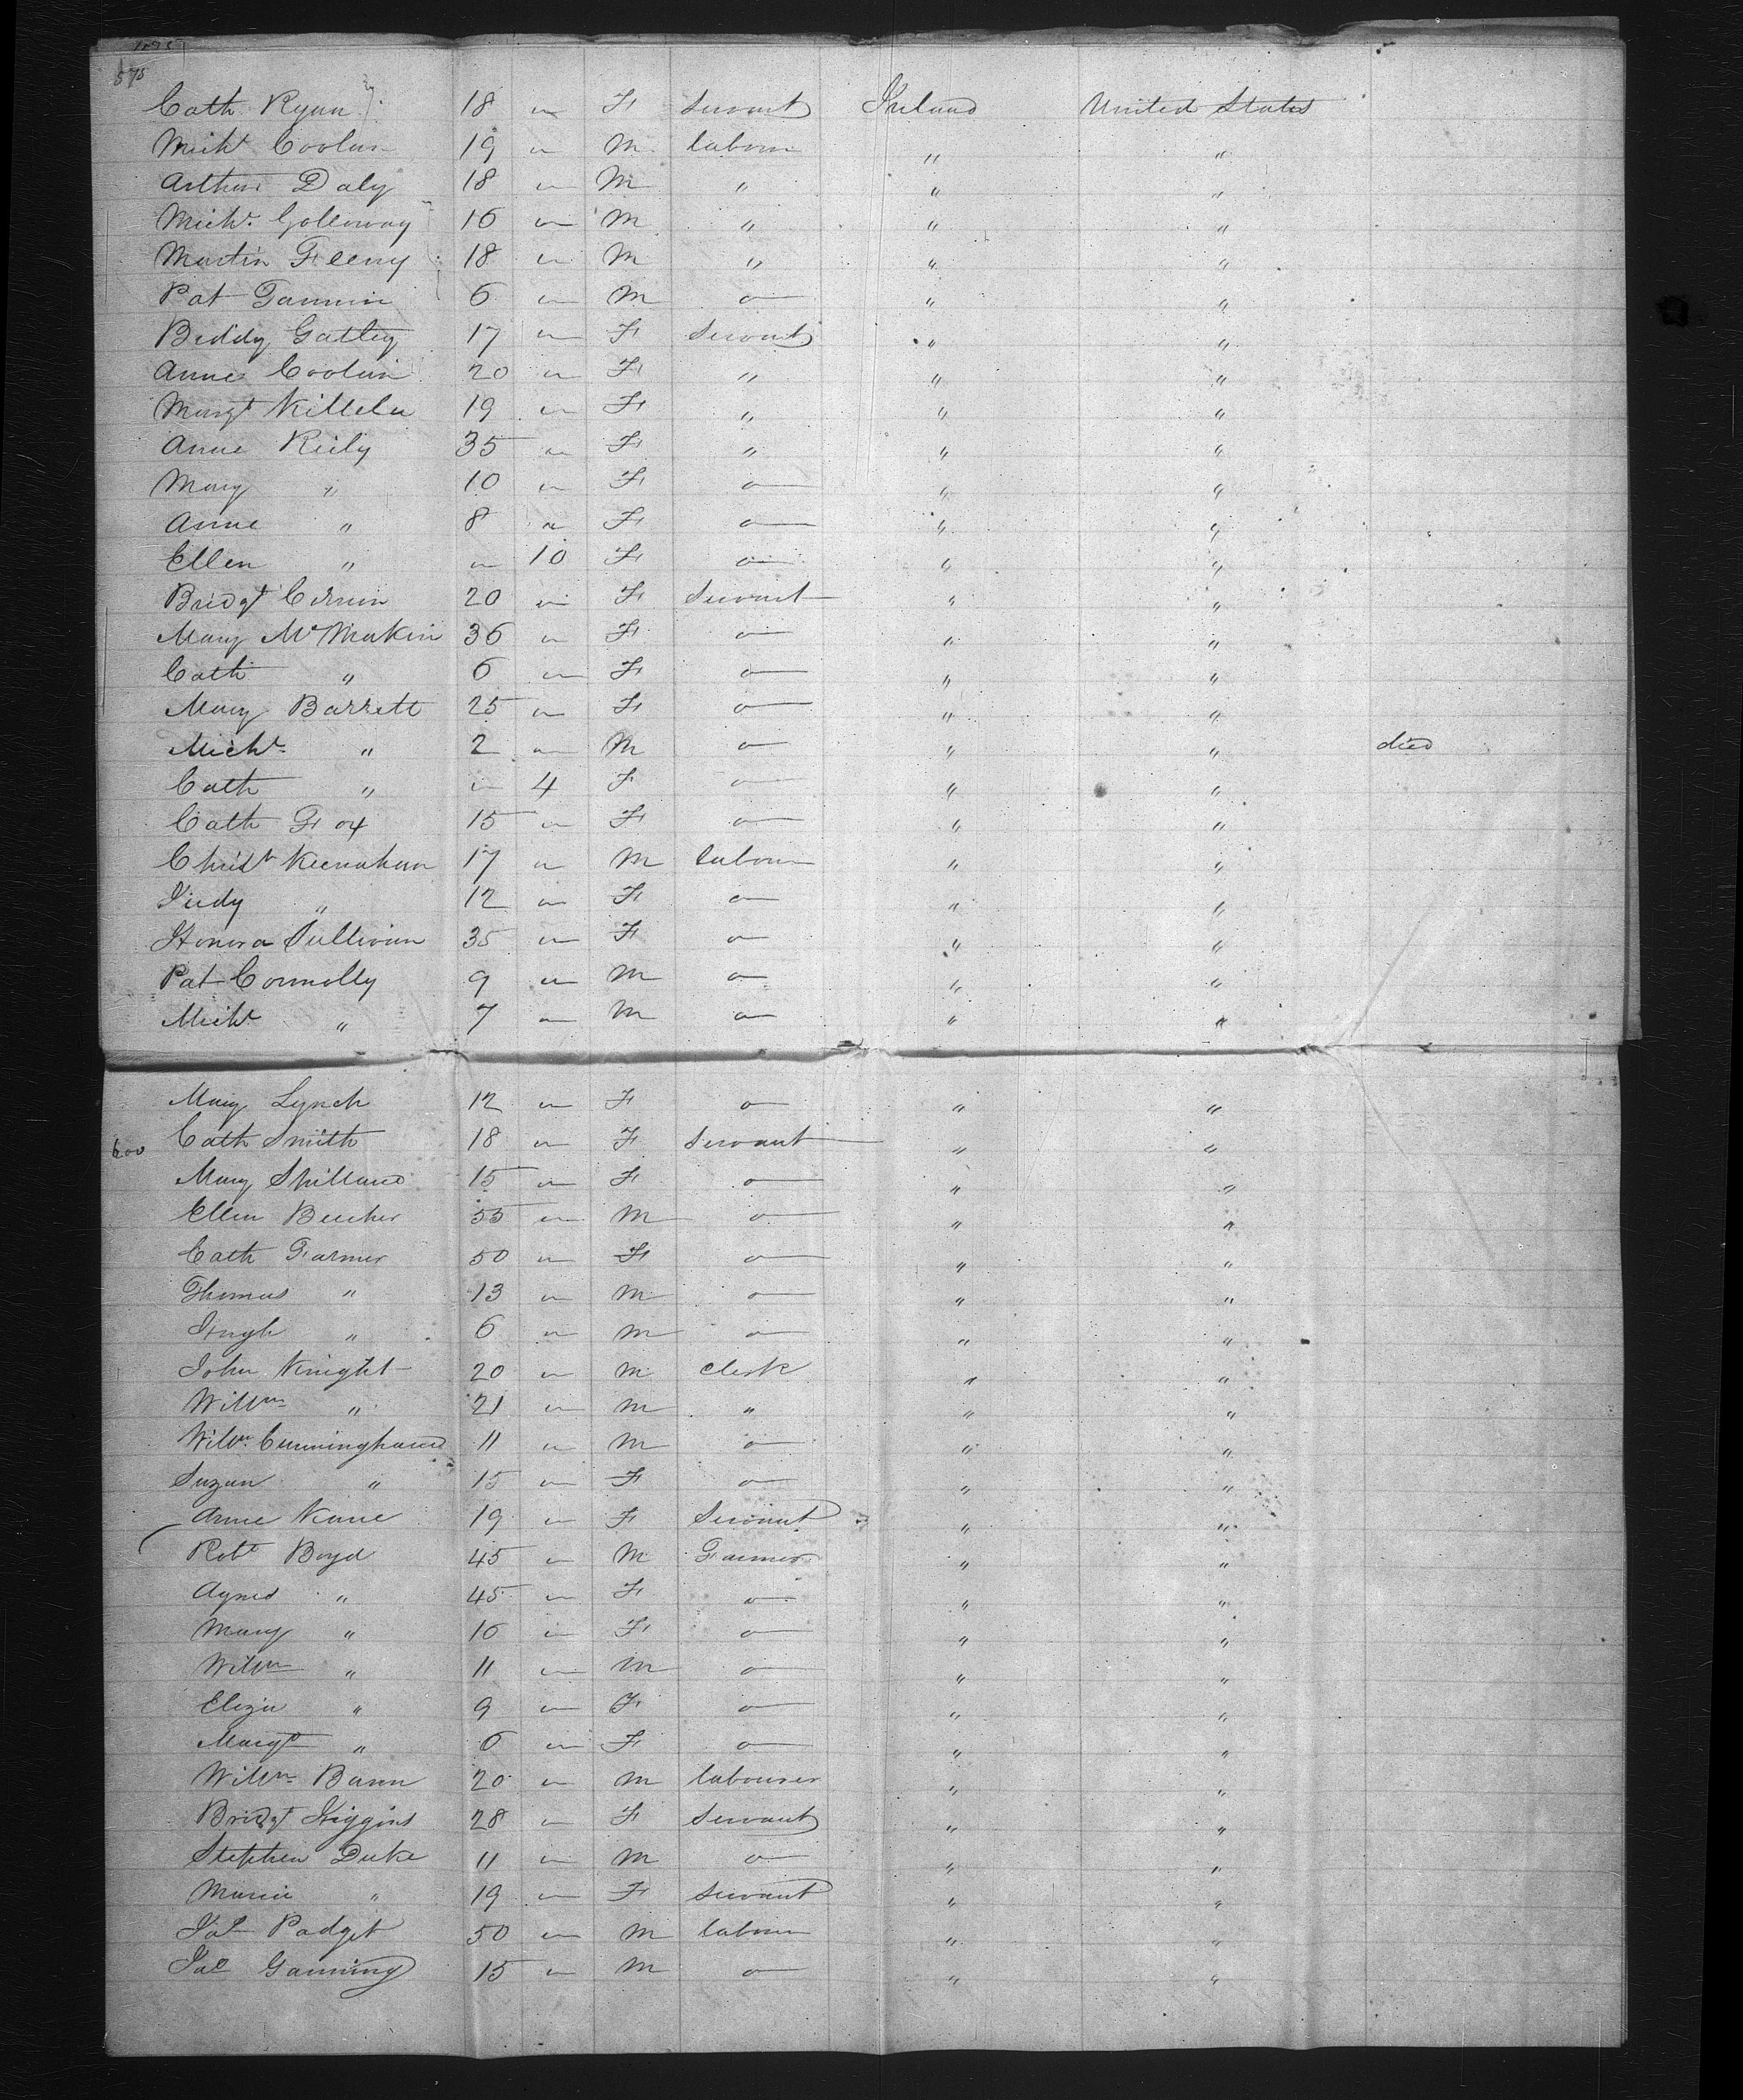 575
Cath Ryan 18 " F servant Ireland United States
Mich.l Coolin 19 " M labour " "
Arthur Daly 18 " M " " "
Mich.l Golloway 16 " M " " "
Martin Feeny 18 " M " " "
Pat Tannin 6 " M " " "
Biddy Gatley 17 " F servant " "
Anne Coolin 20 " F " " "
Margt Killela 19 " F " " "
Anne Reily 35 " F " " "
Mary " 10 " F " " "
Anne " 8 " F " " "
Ellen " " 10 F " " "
Bridgt 20 " F servant " "
Mary McMakin 36 " F " " "
Cath " 6 " F " " "
Mary Barrett 25 " F " " "
Mich.l " 2 " M " " " died
Cath " " 4 F " " "
Cath Fox 15 " F " " "
Christ Keenahan 17 " M labour " "
Judy " 12 " F " " "
Honora Sullivan 35 " F " " "
Pat Connolly 9 " M " " "
Mich.l " 7 " M " " "
Mary Lynch 12 " F " " "
600 Cath Smith 18 " F servant " "
Mary 15 " F " " "
Ellen Becher 55 " M " " "
Cath Farmer 50 " F " " "
Thomas " 13 " M " " "
Hugh " 6 " M " " "
John Knight 20 " M clerk " "
Willm " 21 " M " " "
Willm Cunningham 11 " M " " "
Suzan " 15 " F " " "
Anne Kane 19 " F Servant " "
Robt Boyd 45 " M Farmer " "
Agnes " 45 " F " " "
Mary " 16 " F " " "
Willm " 11 " M " " "
Eliza " 9 " F " " "
Margt " 6 " F " " "
Willm Bann 20 " M labourer " "
Bridgt Higgins 28 " F servant " "
Stephen Duke 11 " M " " "
Maria " 19 " F servant " "
Jas Padget 50 " M labour " "
Jas Ganning 15 " M " " "